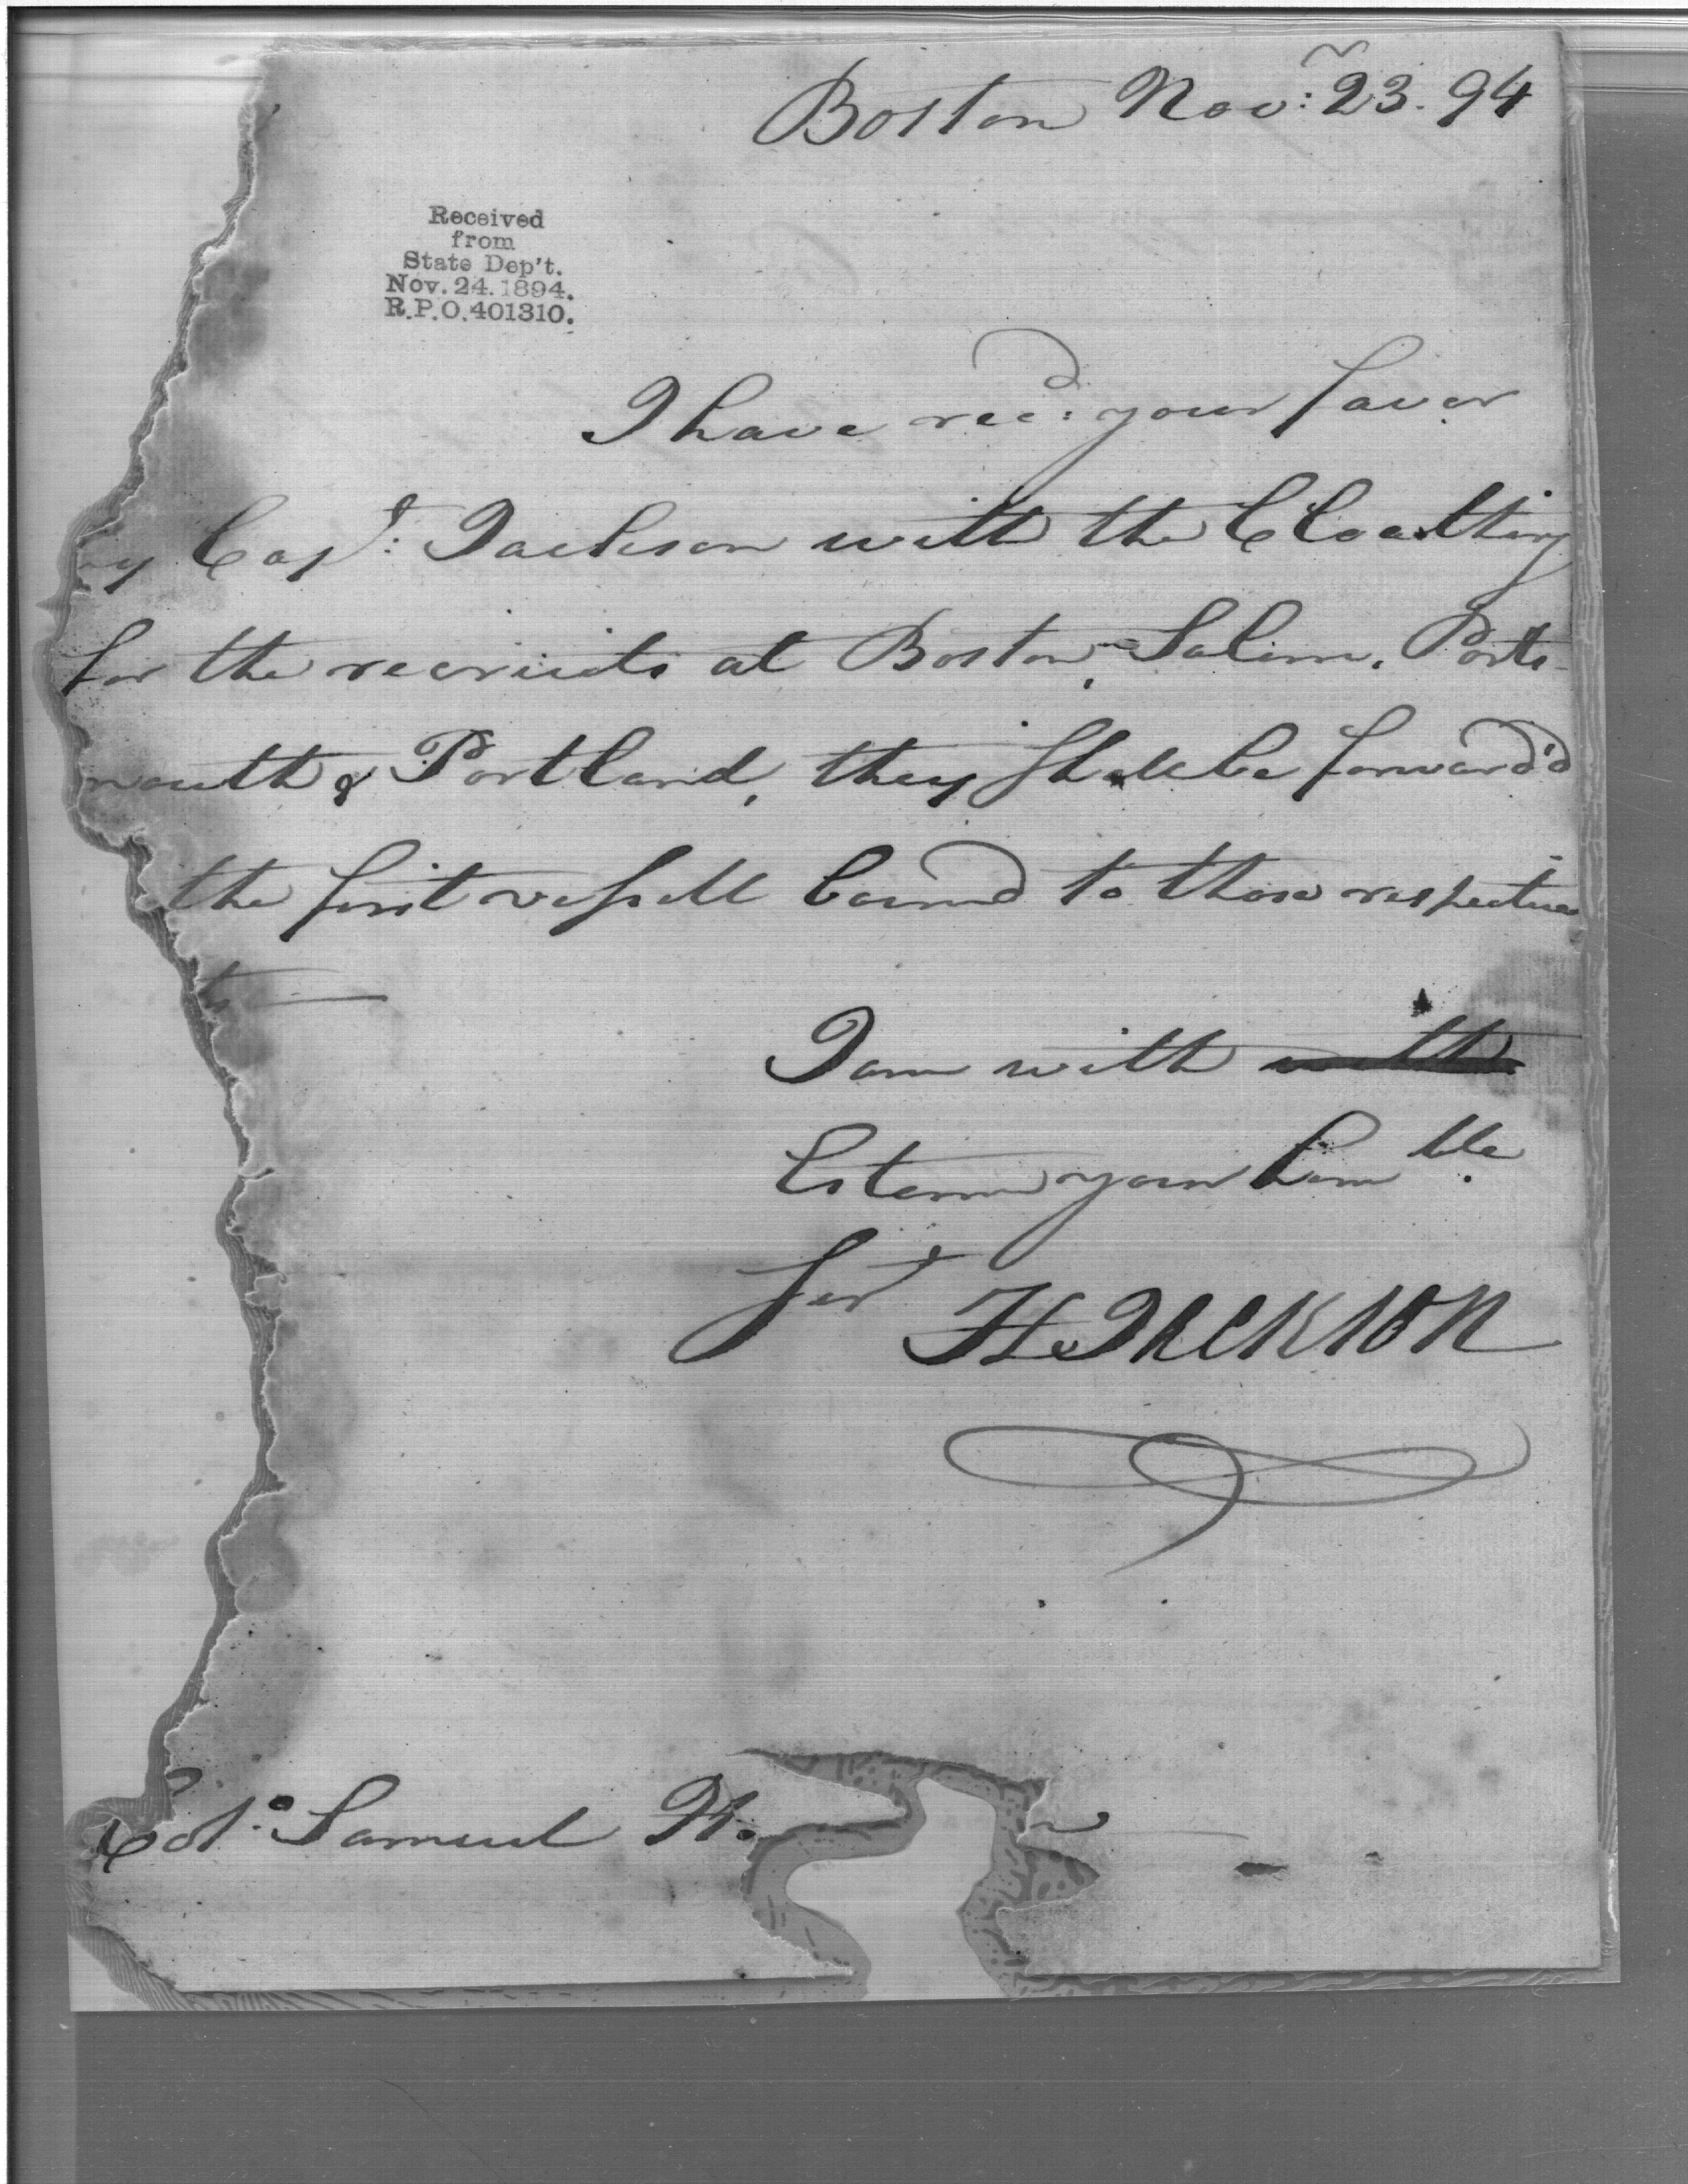 Boston Nov: 23. 94
Received
from
State Dep't.
Nov. 24. 1894.
R.P.O. 401310.
I have rec:d your favor
by Cap.t: Jackson with the Cloathing
for the recruits at Boston, Salem, Ports-
mouth & Portland, they shall be forward'd
the first vessell bound to those respective
I am with with
Esteem your hum.ble
Ser.t H Jackson
Col.o: Samuel H.